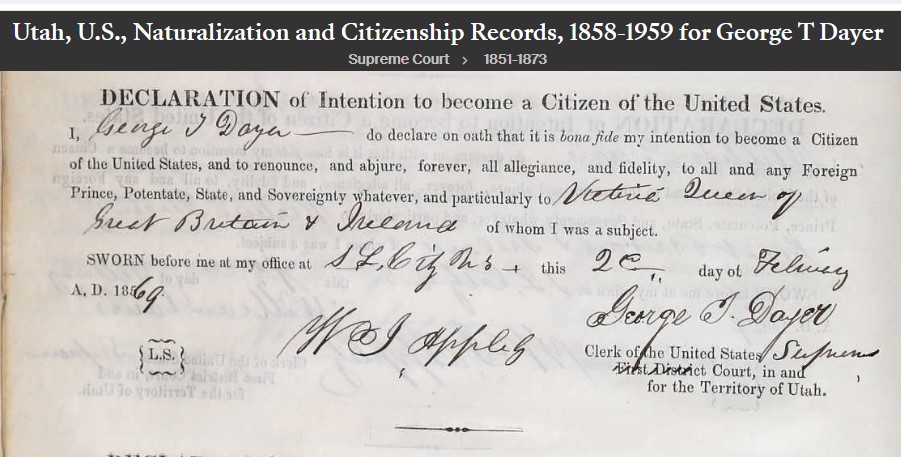 Utah, U.S., Naturalization and Citizenship Records, 1858-1959 for George T Dayer
Supreme Court > 1851-1873
DECLARATION of Intention to become a Citizen of the United States.
I, George T Dayer do declare on oath that it is bona fide my intention to become a Citizen
of the United States, and to renounce, and abjure, forever, all allegiance, and fidelity, to all and any Foreign
Prince, Potentate, State, and Sovereignty whatever, and particularly to Victoria Queen of
Great Britain & Ireland of whom I was a subject.
SWORN before me at my office at S L City this day of
A, D. 1869.
George T. Dayer
W I Appleby
{L.S.}
Clerk of the United States Supreme
First District Court, in and
for the Territory of Utah.